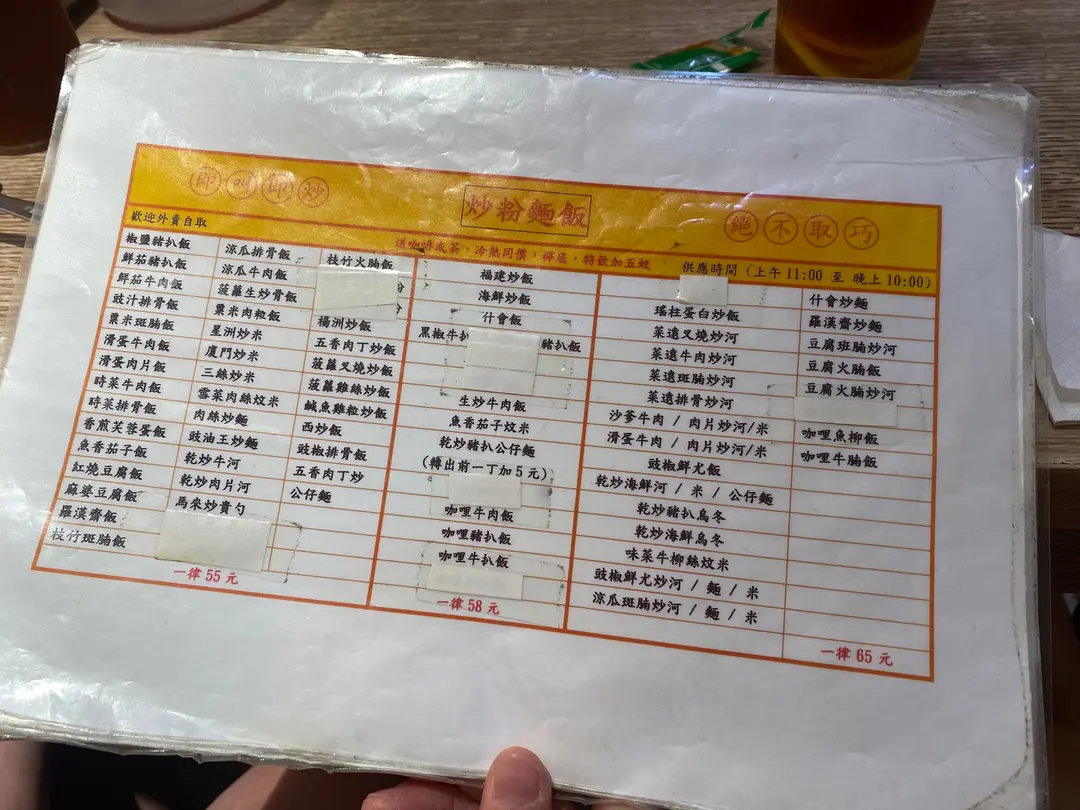 即叫即炒
炒粉麵飯
絕不取巧
歡迎外賣自取
送咖啡或茶，冷熱同價，檸底，特飲加五蚊
供應時間（上午 11:00 至 晚上 10:00）
椒鹽豬扒飯
鮮茄豬扒飯
鮮茄牛肉飯
豉汁排骨飯
粟米斑腩飯
滑蛋牛肉飯
滑蛋肉片飯
時菜牛肉飯
時菜排骨飯
香煎芙蓉蛋飯
魚香茄子飯
紅燒豆腐飯
麻婆豆腐飯
羅漢齋飯
枝竹斑腩飯
涼瓜排骨飯
涼瓜牛肉飯
菠蘿生炒骨飯
粟米肉粒飯
星洲炒米
廈門炒米
三絲炒米
雪菜肉絲炆米
肉絲炒麵
豉油王炒麵
乾炒牛河
乾炒肉片河
馬來炒貴勺
枝竹火腩飯
粉
楊洲炒飯
五香肉丁炒飯
菠蘿叉燒炒飯
菠蘿雞絲炒飯
鹹魚雞粒炒飯
西炒飯
豉椒排骨飯
五香肉丁炒
公仔麵
一律 55 元
福建炒飯
海鮮炒飯
什會飯
黑椒牛扒 豬扒飯
生炒牛肉飯
魚香茄子炆米
乾炒豬扒公仔麵
(轉出前一丁加 5 元)
咖哩牛肉飯
咖哩豬扒飯
咖哩牛扒飯
一律 58 元
瑤柱蛋白炒飯
菜遠叉燒炒河
菜遠牛肉炒河
菜遠斑腩炒河
菜遠排骨炒河
沙爹牛肉 / 肉片炒河/米
滑蛋牛肉 / 肉片炒河/米
豉椒鮮尤飯
乾炒海鮮河 / 米 / 公仔麵
乾炒豬扒烏冬
乾炒海鮮烏冬
味菜牛柳絲炆米
豉椒鮮尤炒河 / 麵 / 米
涼瓜斑腩炒河 / 麵 / 米
什會炒麵
羅漢齋炒麵
豆腐班腩炒河
豆腐火腩飯
豆腐火腩炒河
咖哩魚柳飯
咖哩牛腩飯
一律 65 元